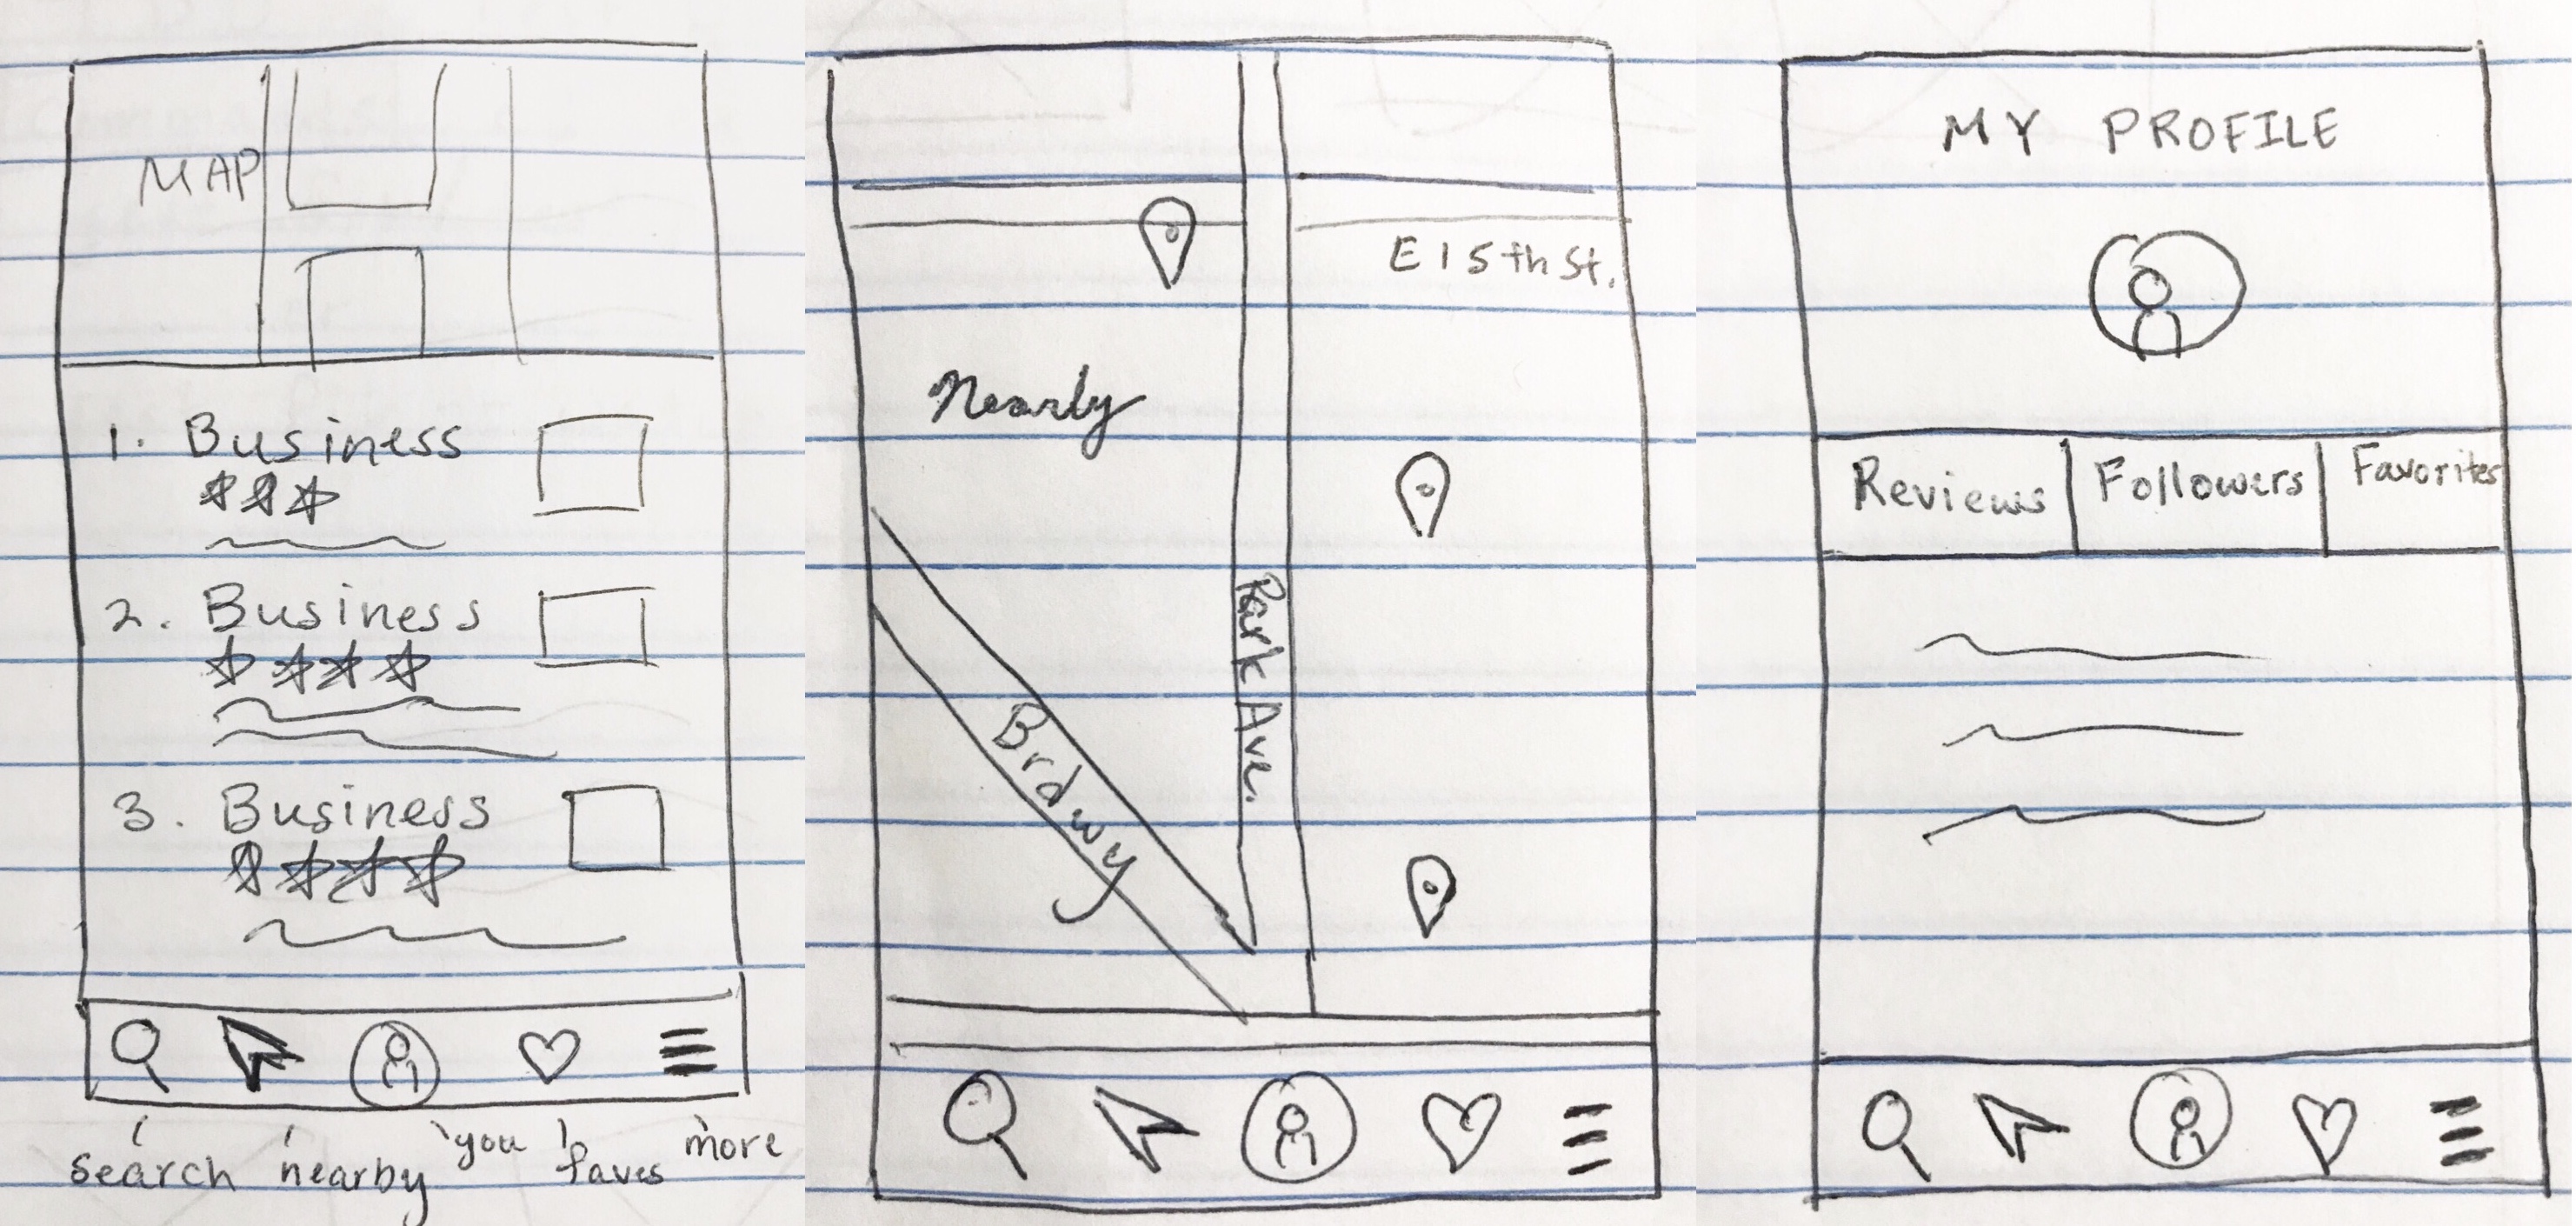 MAP
1. Business
2. Business
3. Business
search nearby you faves more
E 15th St.
Nearly
Park Ave.
Brdwy
MY PROFILE
Reviews Followers Favorites